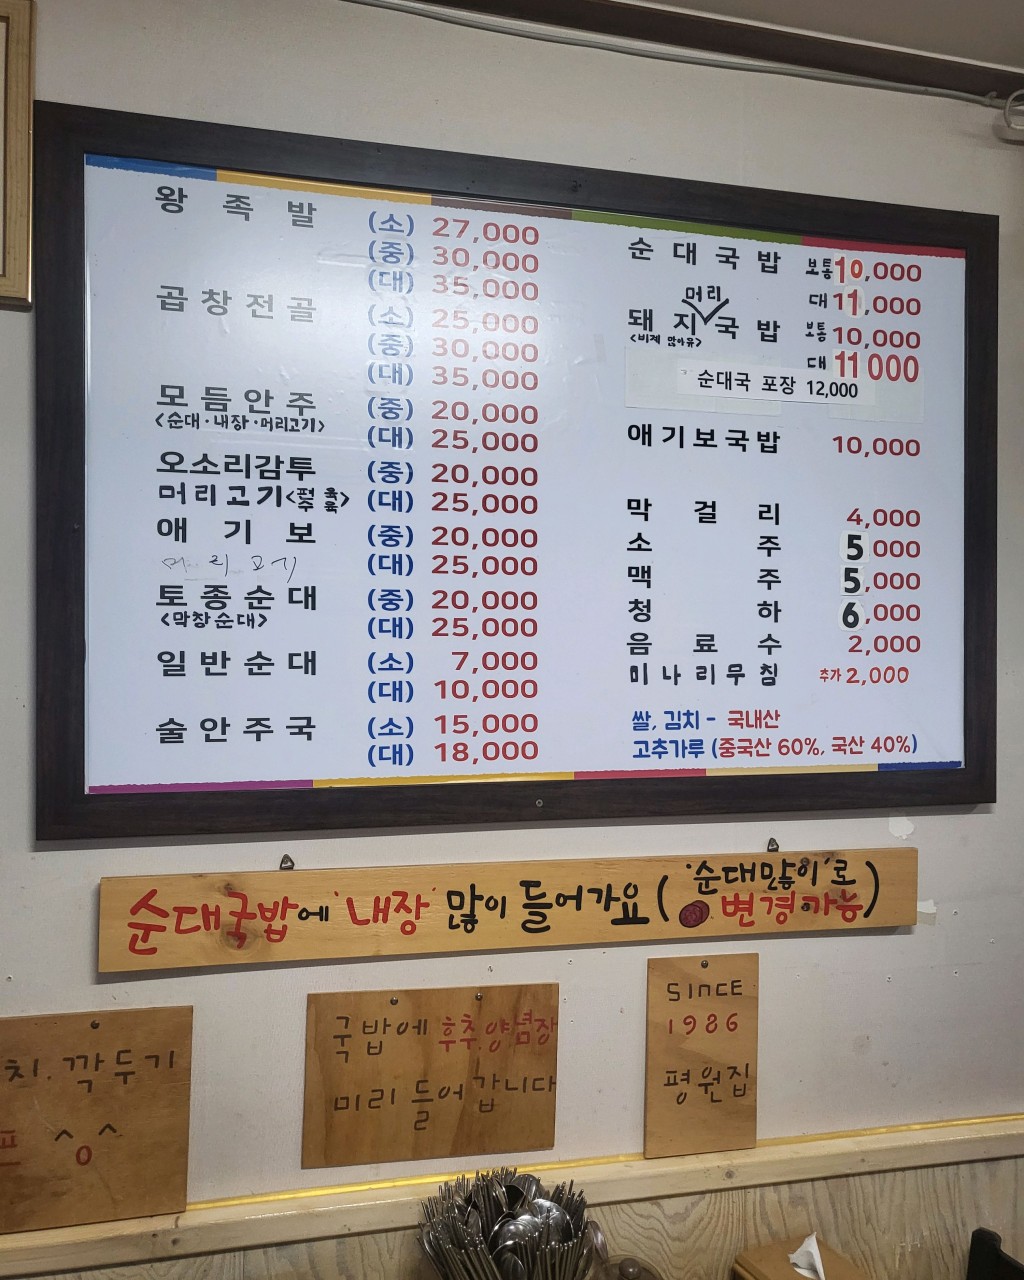 왕족발 (소) 27,000
(중) 30,000
(대) 35,000
곱창전골 (소) 25,000
(중) 30,000
(대) 35,000
모듬안주 (중) 20,000
<순대·내장·머리고기> (대) 25,000
오소리감투 (중) 20,000
머리고기<편육 수육> (대) 25,000
애기보 (중) 20,000
머리고기 (대) 25,000
토종순대 (중) 20,000
<막창순대> (대) 25,000
일반순대 (소) 7,000
(대) 10,000
술안주국 (소) 15,000
(대) 18,000
순대국밥 보통 10,000
대 11,000
머리
돼지국밥 보통 10,000
<비계 많아유> 대 11000
순대국 포장 12,000
애기보국밥 10,000
막걸리 4,000
소주 5000
맥주 5,000
청하 6,000
음료수 2,000
미나리무침 추가 2,000
쌀, 김치 - 국내산
고추가루 (중국산 60%, 국산 40%)
순대국밥에 '내장' 많이 들어가요 ('순대많이'로 변경가능)
치.깍두기
^o^
국밥에 후추.양념장
미리 들어갑니다
SINCE
1986
평원집